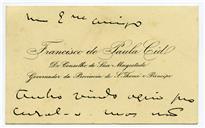 meu Exmo amigo
Francisco de Paula Cid
Do Conselho de Sua Magestade
Governador da Provincia de S. Thomé e Principe
Tenho vindo aqui pro
cural-o mas não